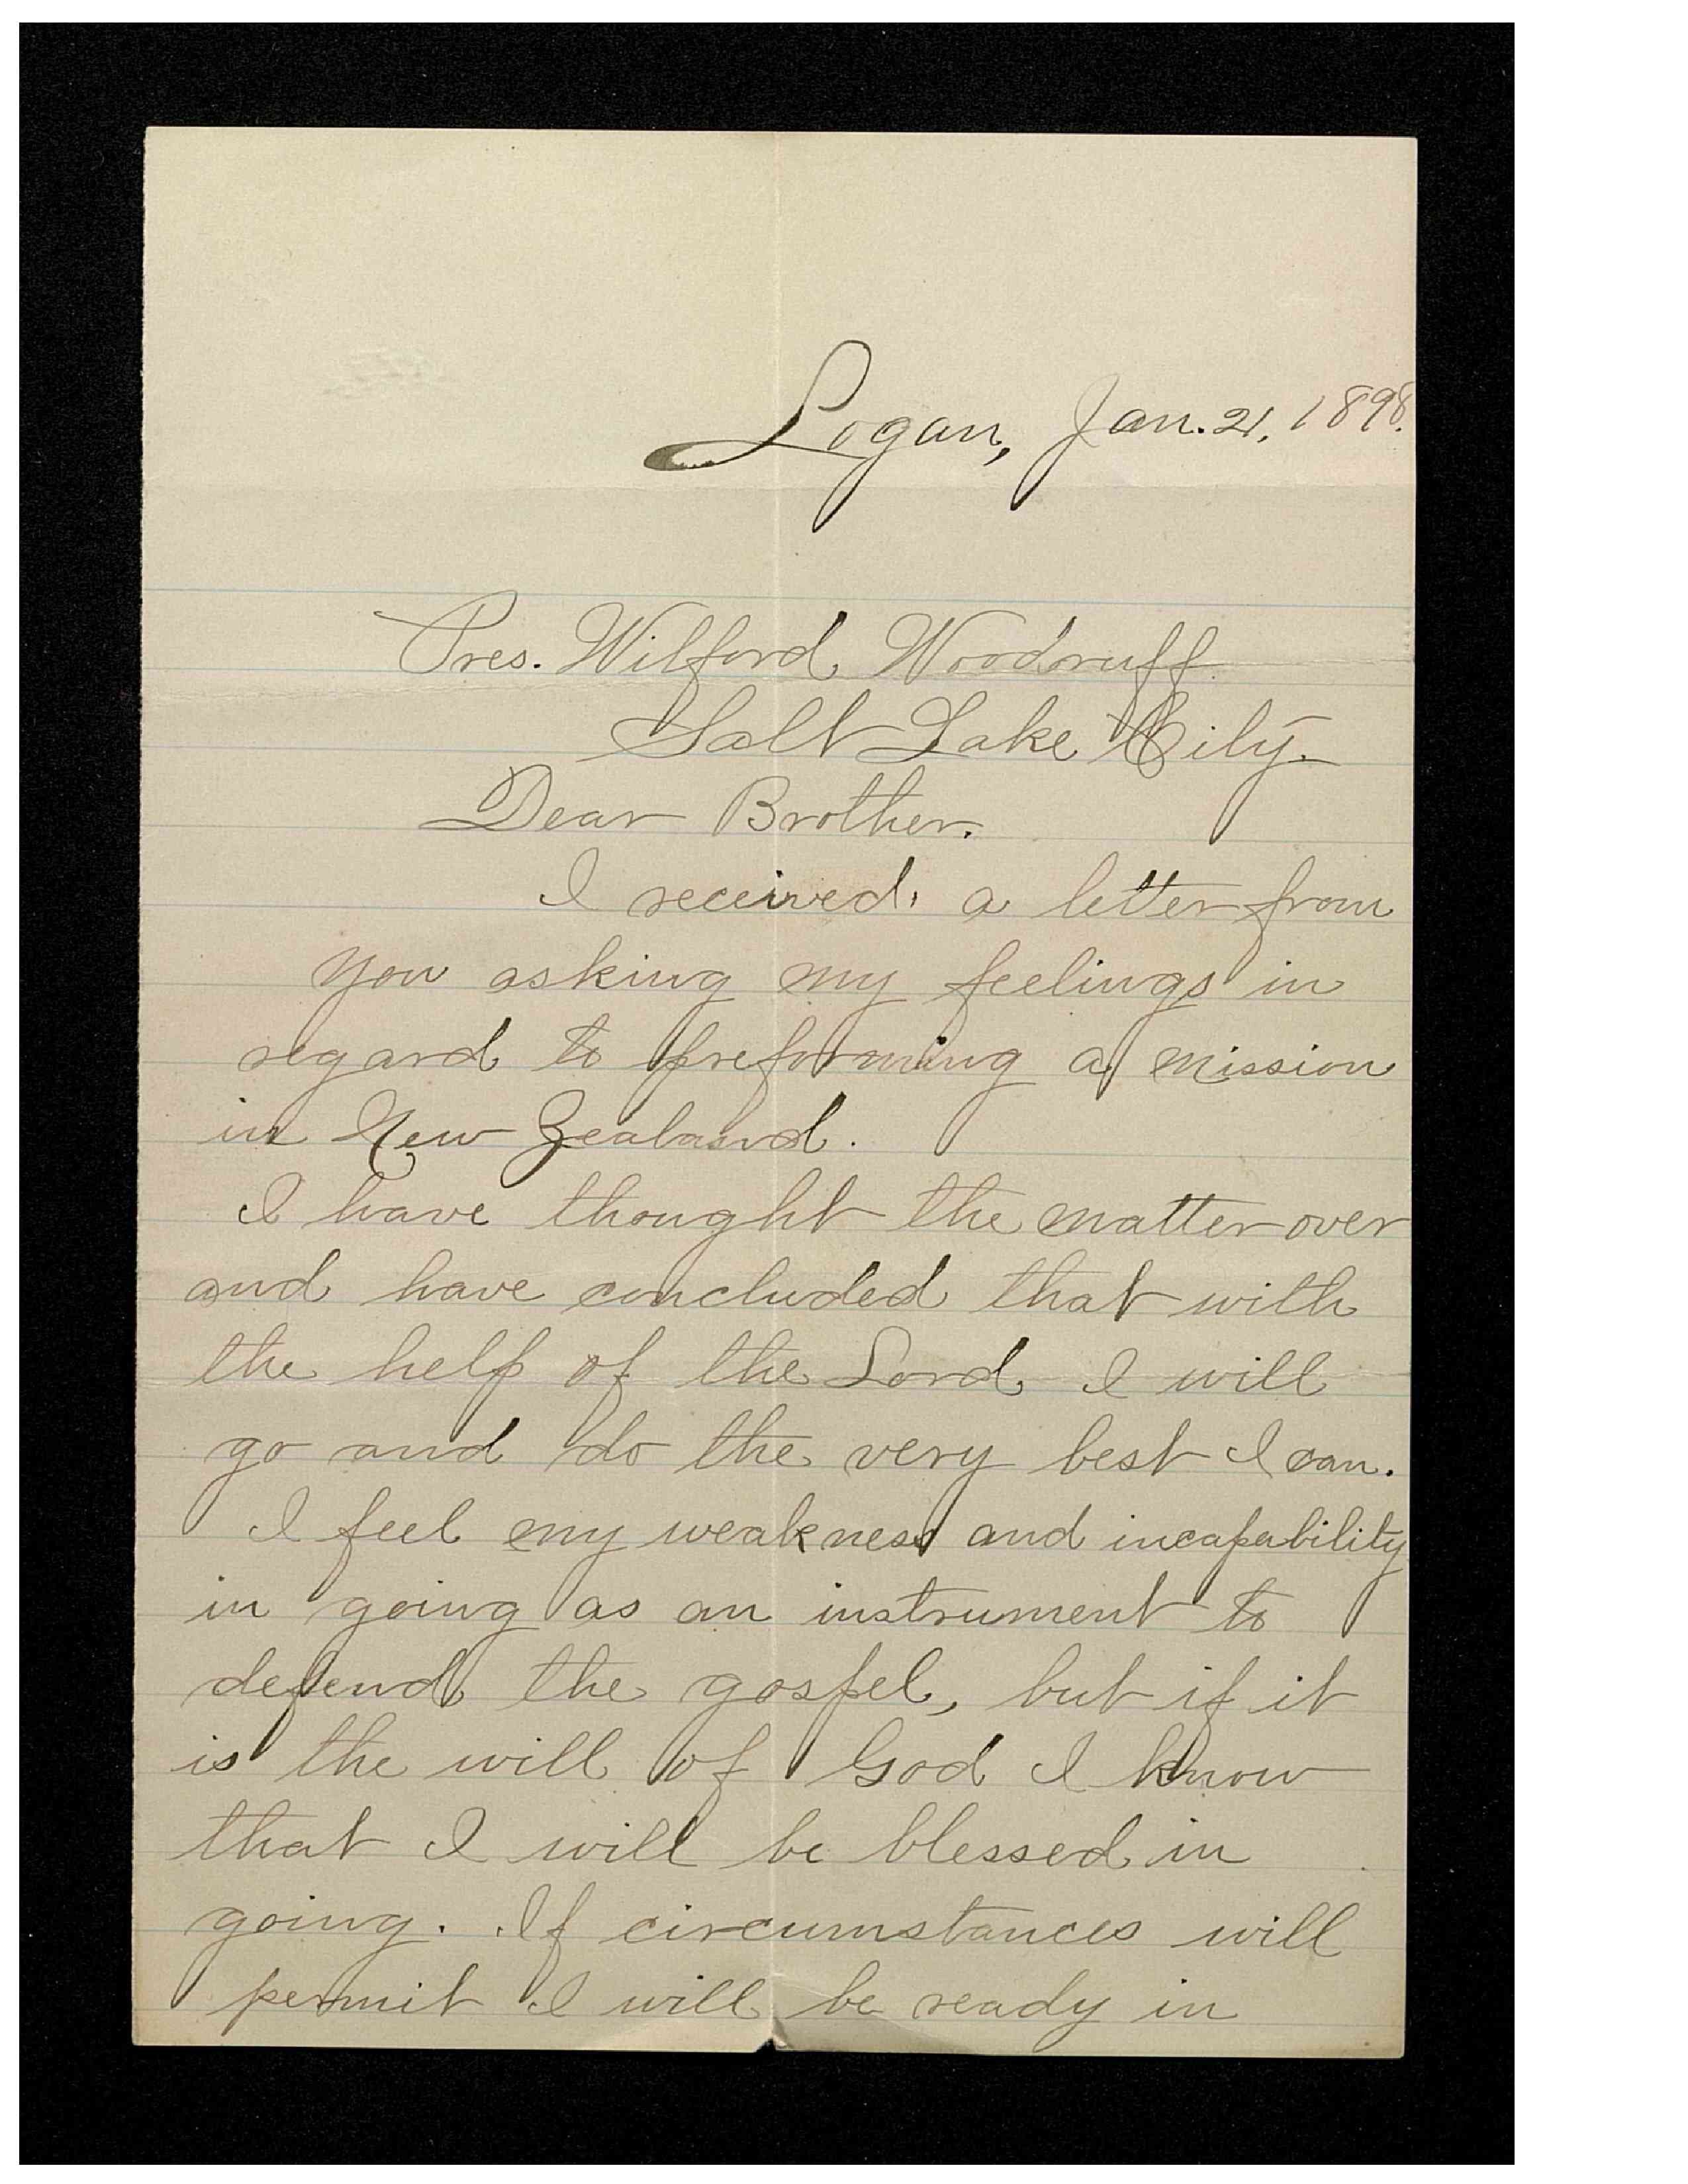 Logan, Jan. 21, 1898.
Pres. Wilford Woodruff.
Salt Lake City.
Dear Brother.
I received, a letter from
you asking my feelings in
regard to preforming a mission
in New Zealand.
I have thought the matter over
and have concluded that with
the help of the Lord I will
go and do the very best I can.
I feel my weakness and incapability
in going as an instrument to
defend the gospel, but if it
is the will of God I know
that I will be blessed in
going. If circumstances will
permit I will be ready in